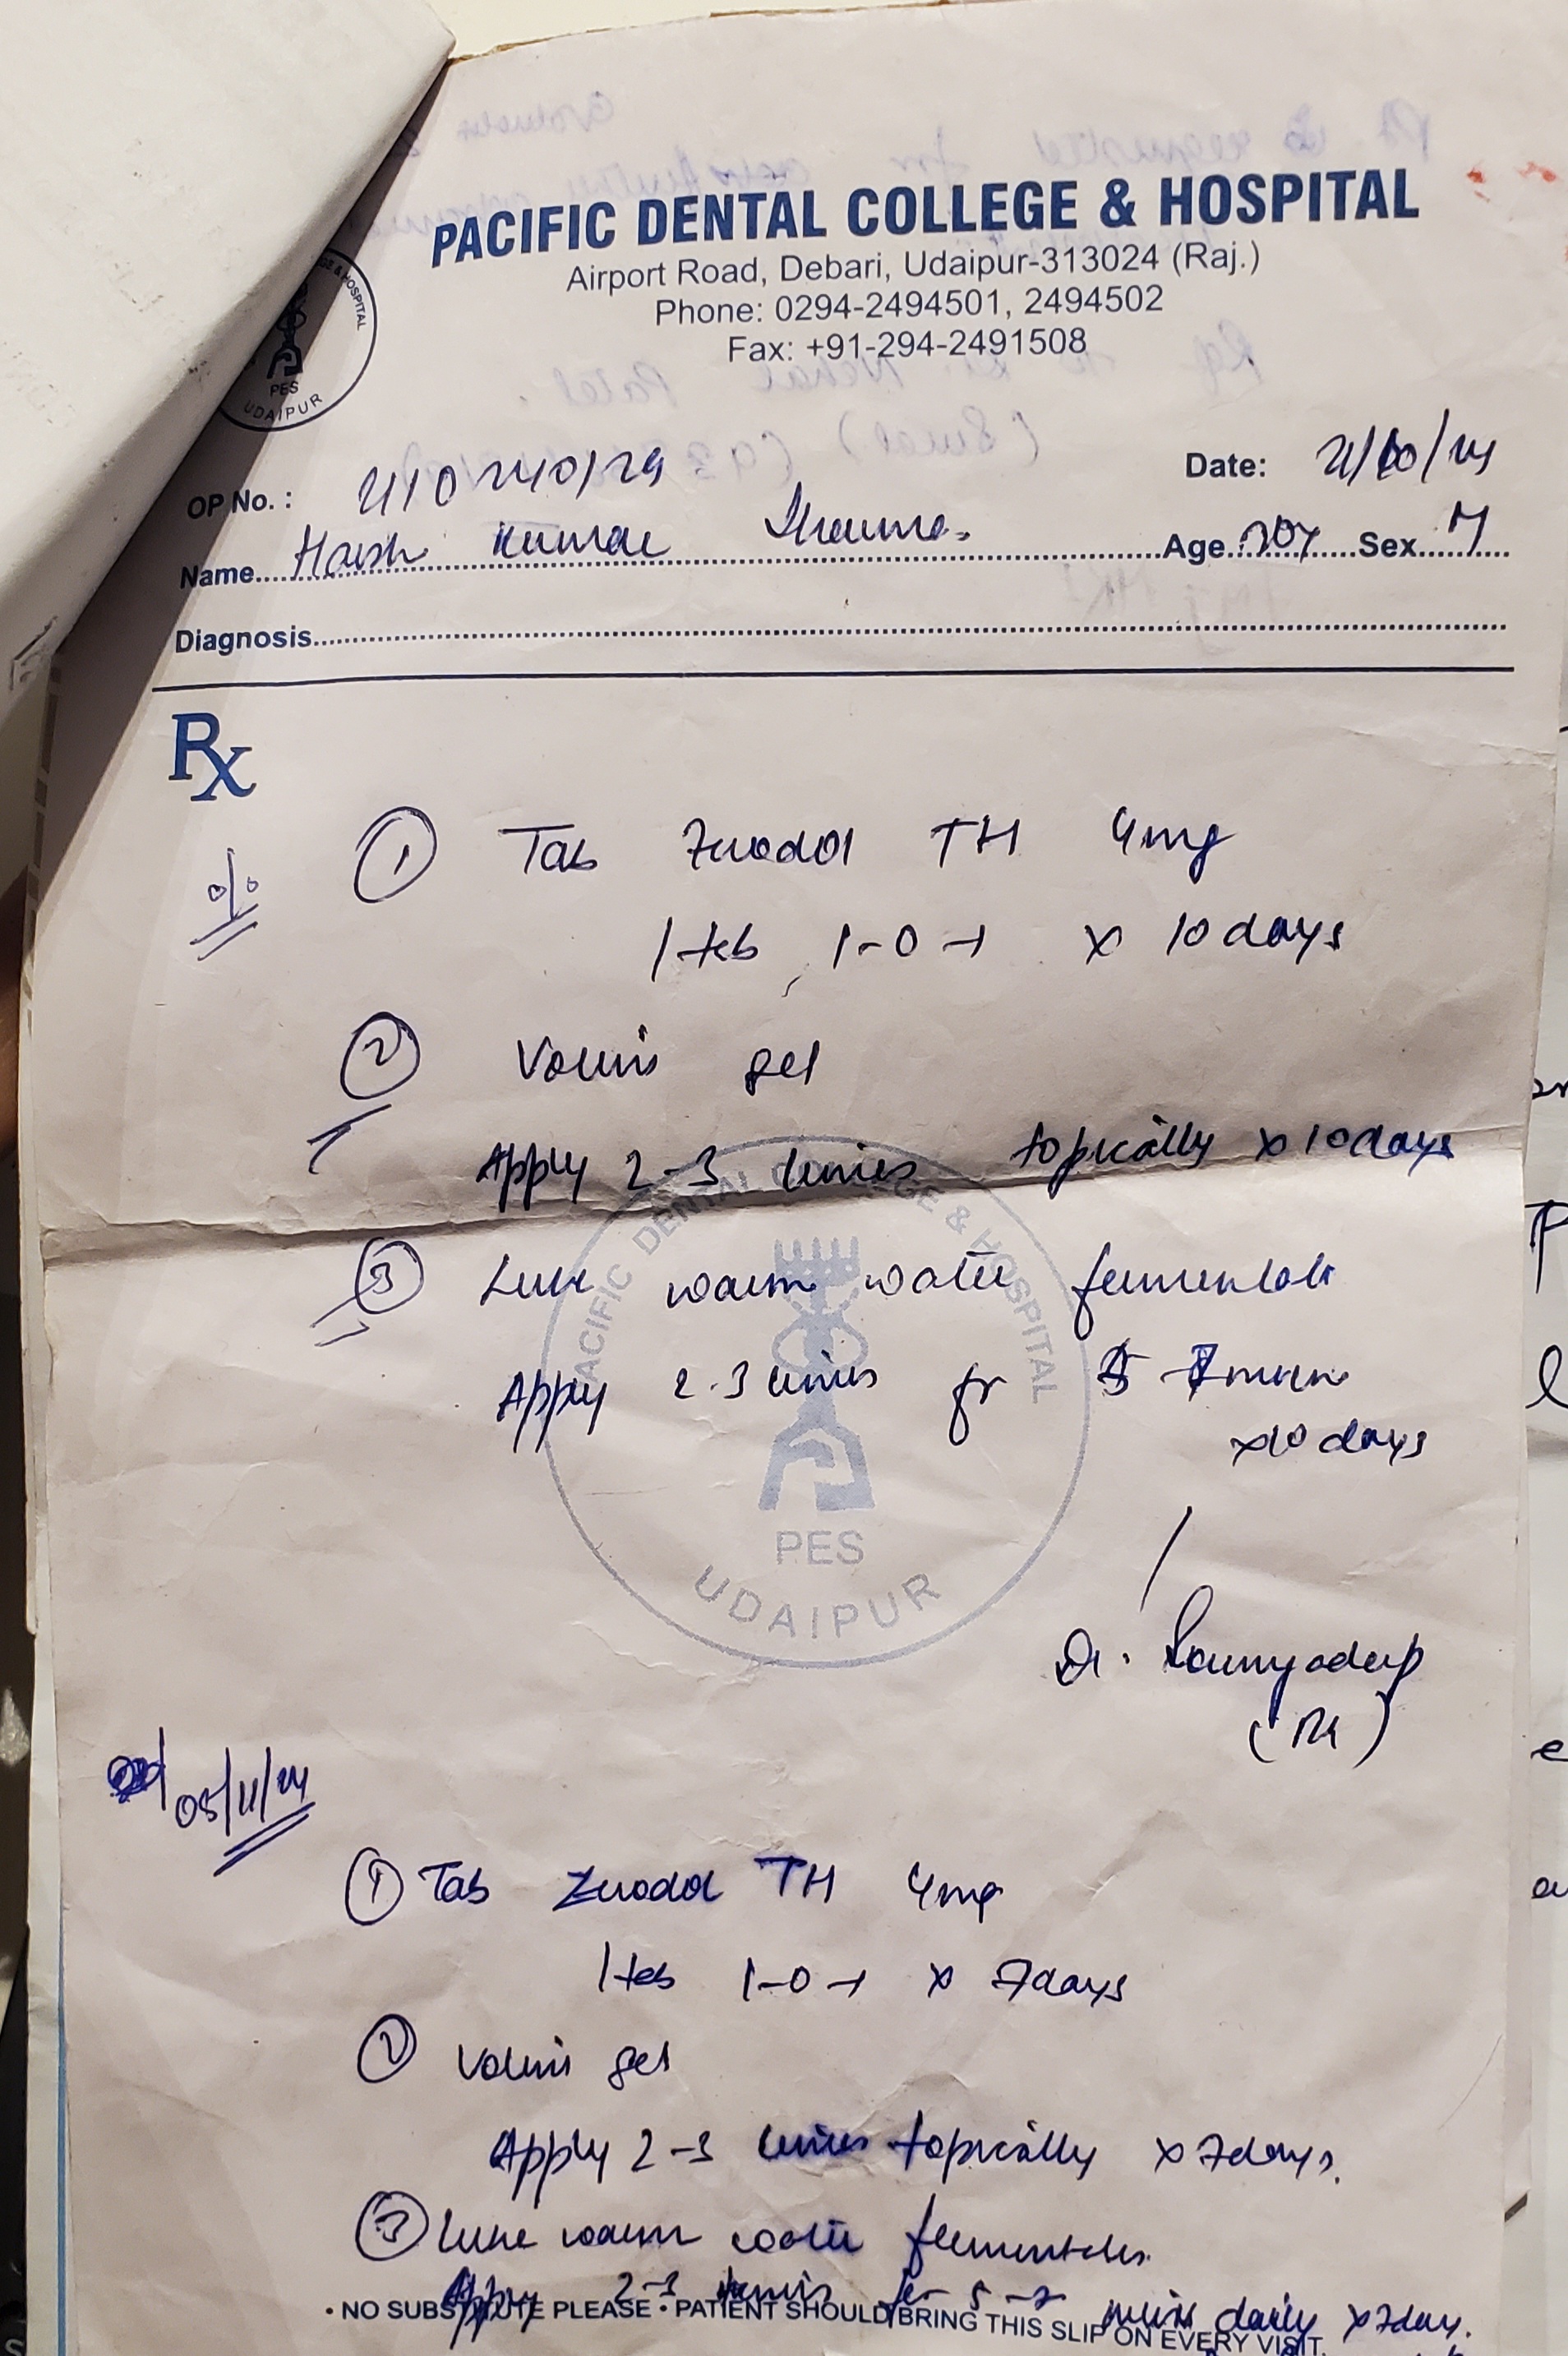 PACIFIC DENTAL COLLEGE & HOSPITAL
Airport Road, Debari, Udaipur-313024 (Raj.)
Phone: 0294-2494501, 2494502
Fax: +91-294-2491508
GE & HOSPITAL
PES
UDAIPUR
Date: 21/10/24
OP No. :
Name Harsh Kumar Sharma Age Sex M
Diagnosis
Rx
① Tab Zerodol TH 4mg
1 tab 1-0-1 x 10 days
② Volini gel
Apply 2-3 times topically x 10 days
③ Luke warm water
Apply 2-3 times for 5-7 x 10 days
PACIFIC DENTAL COLLEGE & HOSPITAL
PES
UDAIPUR
Dr.
05/11/24
① Tab Zerodol TH 4mg
1 tab 1-0-1 x 7 days
② Volini gel
Apply 2-3 times topically x 7 days.
③ Luke warm water
Apply 2-3 times for 5-7 mins daily x 7 day.
• NO SUBSTITUTE PLEASE • PATIENT SHOULD BRING THIS SLIP ON EVERY VISIT.